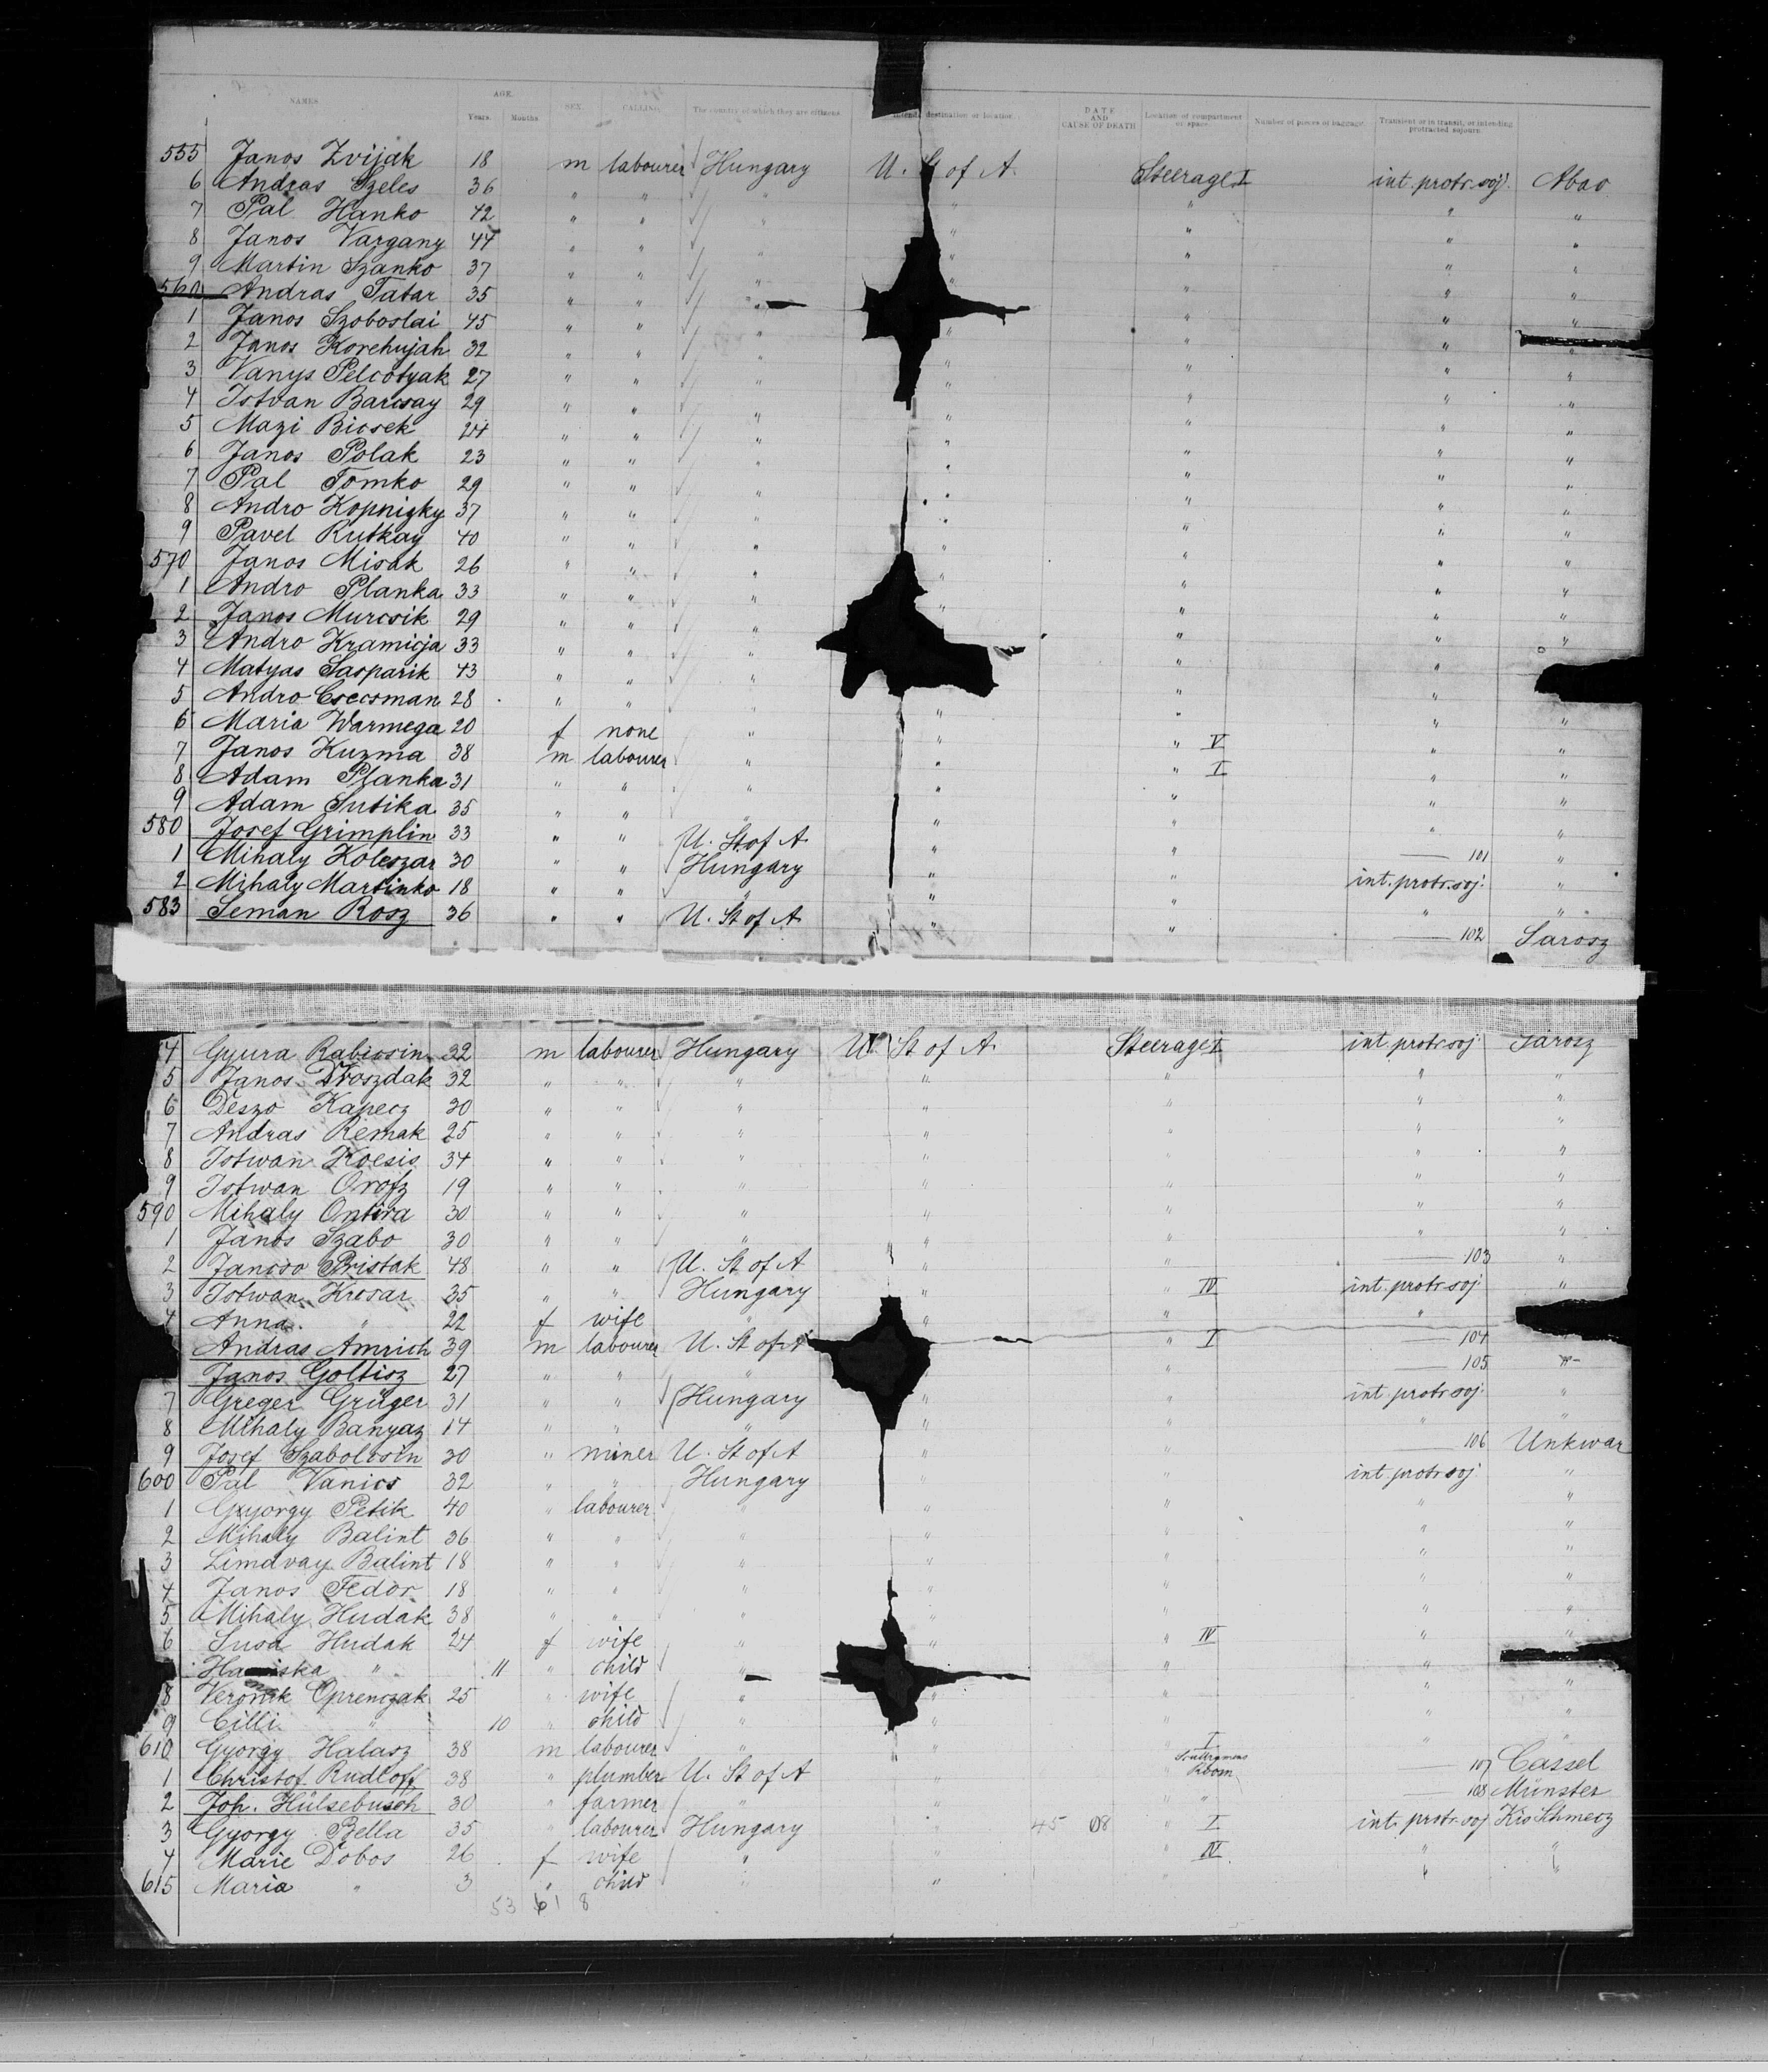 NAMES. AGE. Years. Months SEX. CALLING. The country of which they are citizens Intended destination or location DATE AND CAUSE OF DEATH Location of compartment or space. Number of pieces of baggage. Transient or in transit, or intending protracted sojourn.
555 Janos Zvijak 18 m labourer Hungary U. St of A. Steerage I int. protr. soj. Abao
6 Andras Szeles 36 " " " " " " "
7 Pal Hanko 42 " " " " " " "
8 Janos Vargany 44 " " " " " " "
9 Martin Szanko 37 " " " " " " "
560 Andras Tatar 35 " " " " " "
1 Janos Szoboslai 45 " " " " " "
2 Janos Korehujah 32 " " " " " "
3 Vanys Pelcotyak 27 " " " " " " "
4 Istvan Barcsay 29 " " " " " " "
5 Mazi Biosek 24 " " " " " " "
6 Janos Polak 23 " " " " " " "
7 Pal Tomko 29 " " " " " " "
8 Andro Kopnizky 37 " " " " " " "
9 Pavel Rutkay 40 " " " " " " "
570 Janos Misak 26 " " " " " "
1 Andro Planka 33 " " " " " " "
2 Janos Murcsik 29 " " " " " "
3 Andro Kramicja 33 " " " " " "
4 Matyas Gasparik 43 " " " " "
5 Andro Csecsman 28 " " " " " " "
6 Maria Warmega 20 f none " " " V " "
7 Janos Kuzma 38 m labourer " " " I " "
8 Adam Planka 31 " " " " " " "
9 Adam Sutika 35 " " " " " " "
580 Josef Grimplin 33 " " U. St. of A " " 101 "
1 Mihaly Koleszar 30 " " Hungary " " int. protr. soj. "
2 Mihaly Martinko 18 " " " " " " "
583 Seman Rosz 36 " " U. St of A " " 102 Sarosz
4 Gyura Rabicsin 32 m labourer Hungary U. St of A. Steerage I int. protr. soj. Sarosz
5 Janos Droszdak 32 " " " " " " "
6 Deszo Kapecz 30 " " " " " " "
7 Andras Remak 25 " " " " " " "
8 Istwan Kocsis 34 " " " " " " "
9 Istwan Orofz 19 " " " " " " "
590 Mihaly Ontira 30 " " " " " " "
1 Janos Szabo 30 " " " " " " "
2 Jancso Pristak 48 " " U. St of A " " 103 "
3 Istwan Krosar 35 " " Hungary " IV int. protr. soj. "
4 Anna " 22 f wife " " " "
Andras Amrich 39 m labourer U. St of A " I 104
Janos Goltisz 27 " " " " 105 "
7 Greger Grüger 31 " " Hungary " " int. protr. soj. "
8 Mihaly Banyaz 14 " " " " " "
9 Josef Szabolcsin 30 " miner U. St of A " " 106 Unkwar
600 Pal Vanics 32 " " Hungary " " int. protr. soj. "
1 Gyorgy Petik 40 " labourer " " " " "
2 Mihaly Balint 36 " " " " " " "
3 Limavay Balint 18 " " " " " " "
4 Janos Fedor 18 " " " " " " "
5 Mihaly Hudak 38 " " " " " " "
6 Susa Hudak 24 f wife " " " IV " "
" 11 " child " " "
8 Veronik Oprenczak 25 " wife " " " " "
9 Cilli " 10 " child " " " " "
610 Gyorgy Halasz 38 m labourer " " " I " "
1 Christof. Rudloff 38 " plumber U. St of A " Room 107 Cassel
2 Joh. Hülsebusch 30 " farmer " " " " 108 Münster
3 Gyorgy Bella 35 " labourer Hungary " 45 08 " I int. protr. soj. Kis Schmecz
4 Marie Dobos 26 f wife " " " IV " "
615 Maria " 3 " child " " " " "
53 61 8